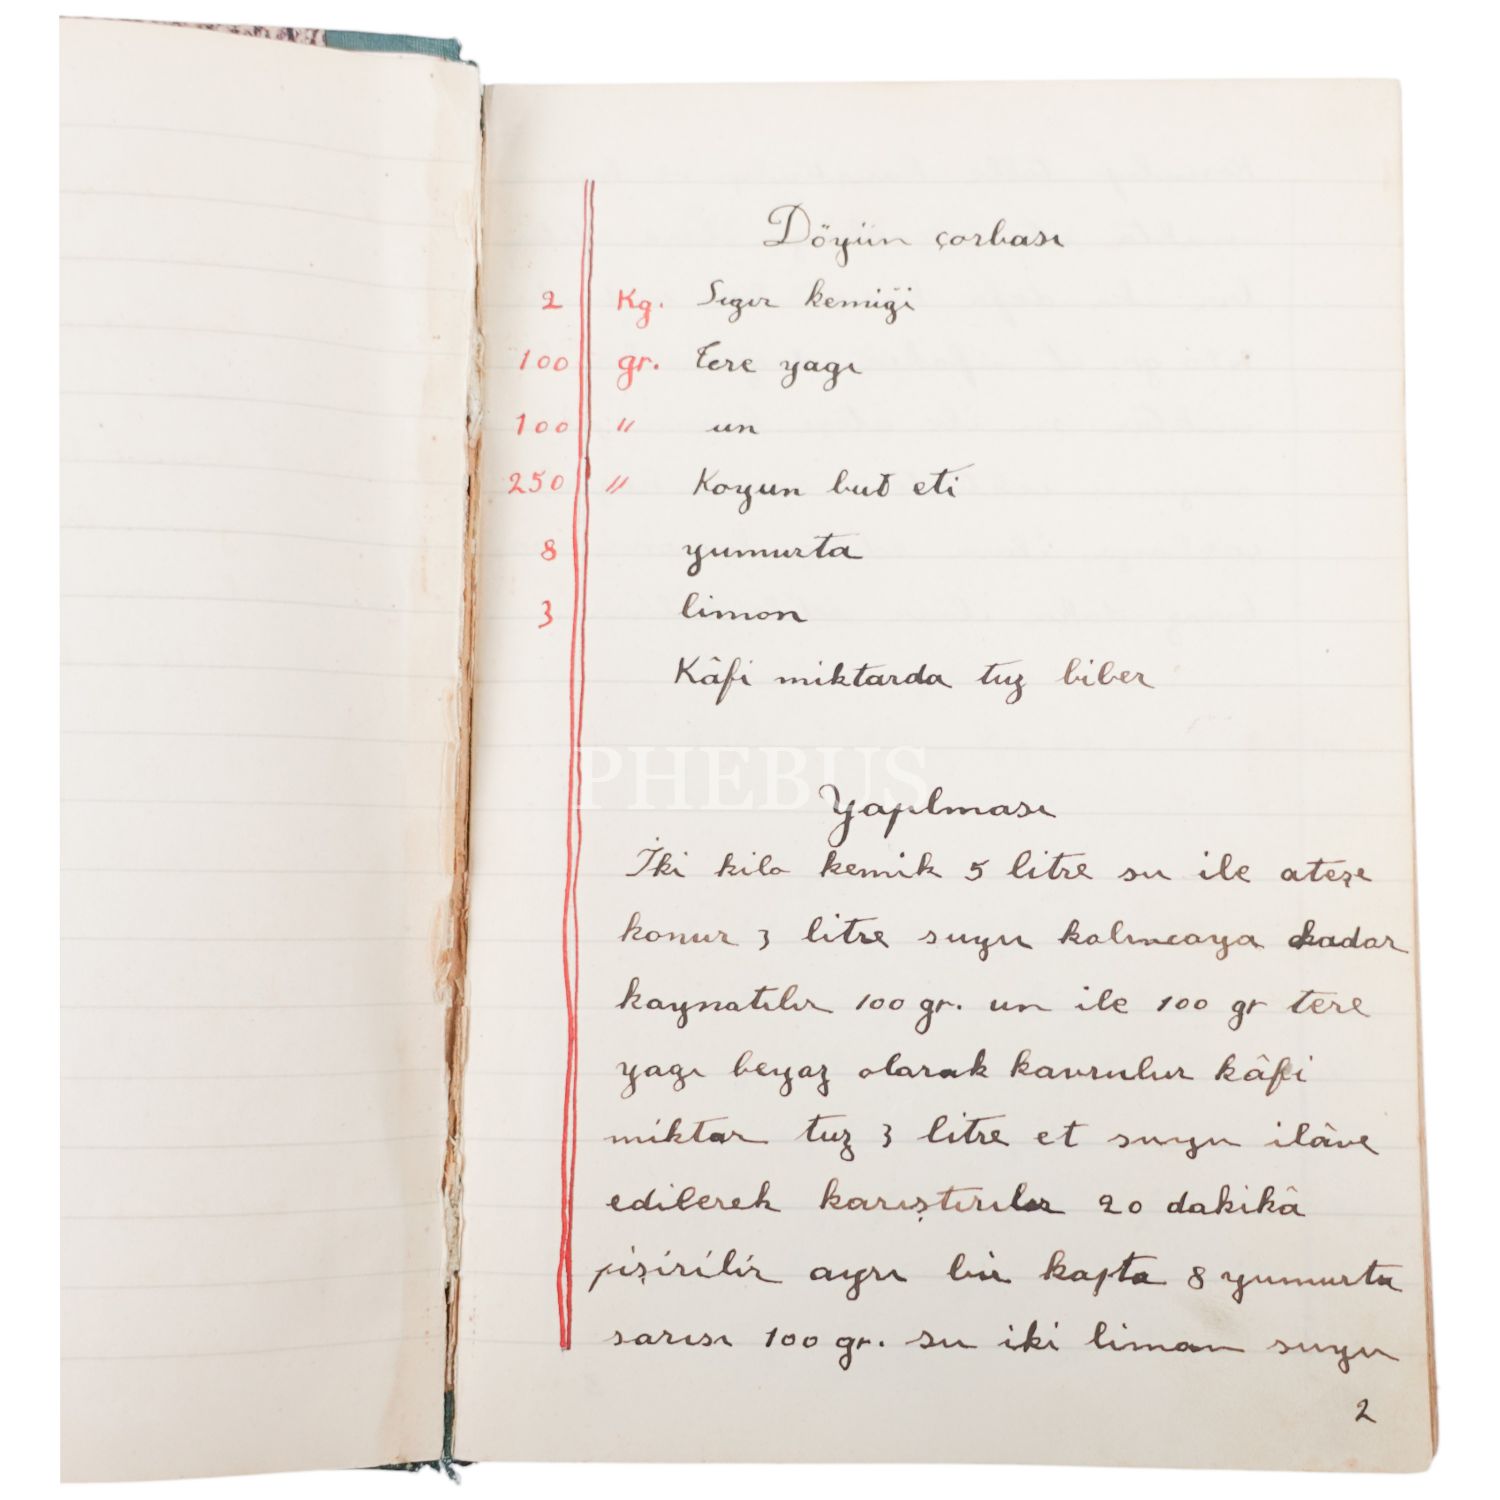 Döyün çorbası
2 Kg. Sıgır kemiği
100 gr. tere yagı
100 " un
250 " Koyun but eti
8 yumurta
3 limon
Kâfi miktarda tuz biber
PHEBUS
Yapılması
İki kilo kemik 5 litre su ile ateşe
konur 3 litre suyu kalıncaya kadar
kaynatılır 100 gr. un ile 100 gr tere
yagı beyaz olarak kavrulur kâfi
miktar tuz 3 litre et suyu ilâve
edilerek karıştırılır 20 dakikâ
pişirilir ayrı bir kapta 8 yumurta
sarısı 100 gr. su iki limon suyu
2